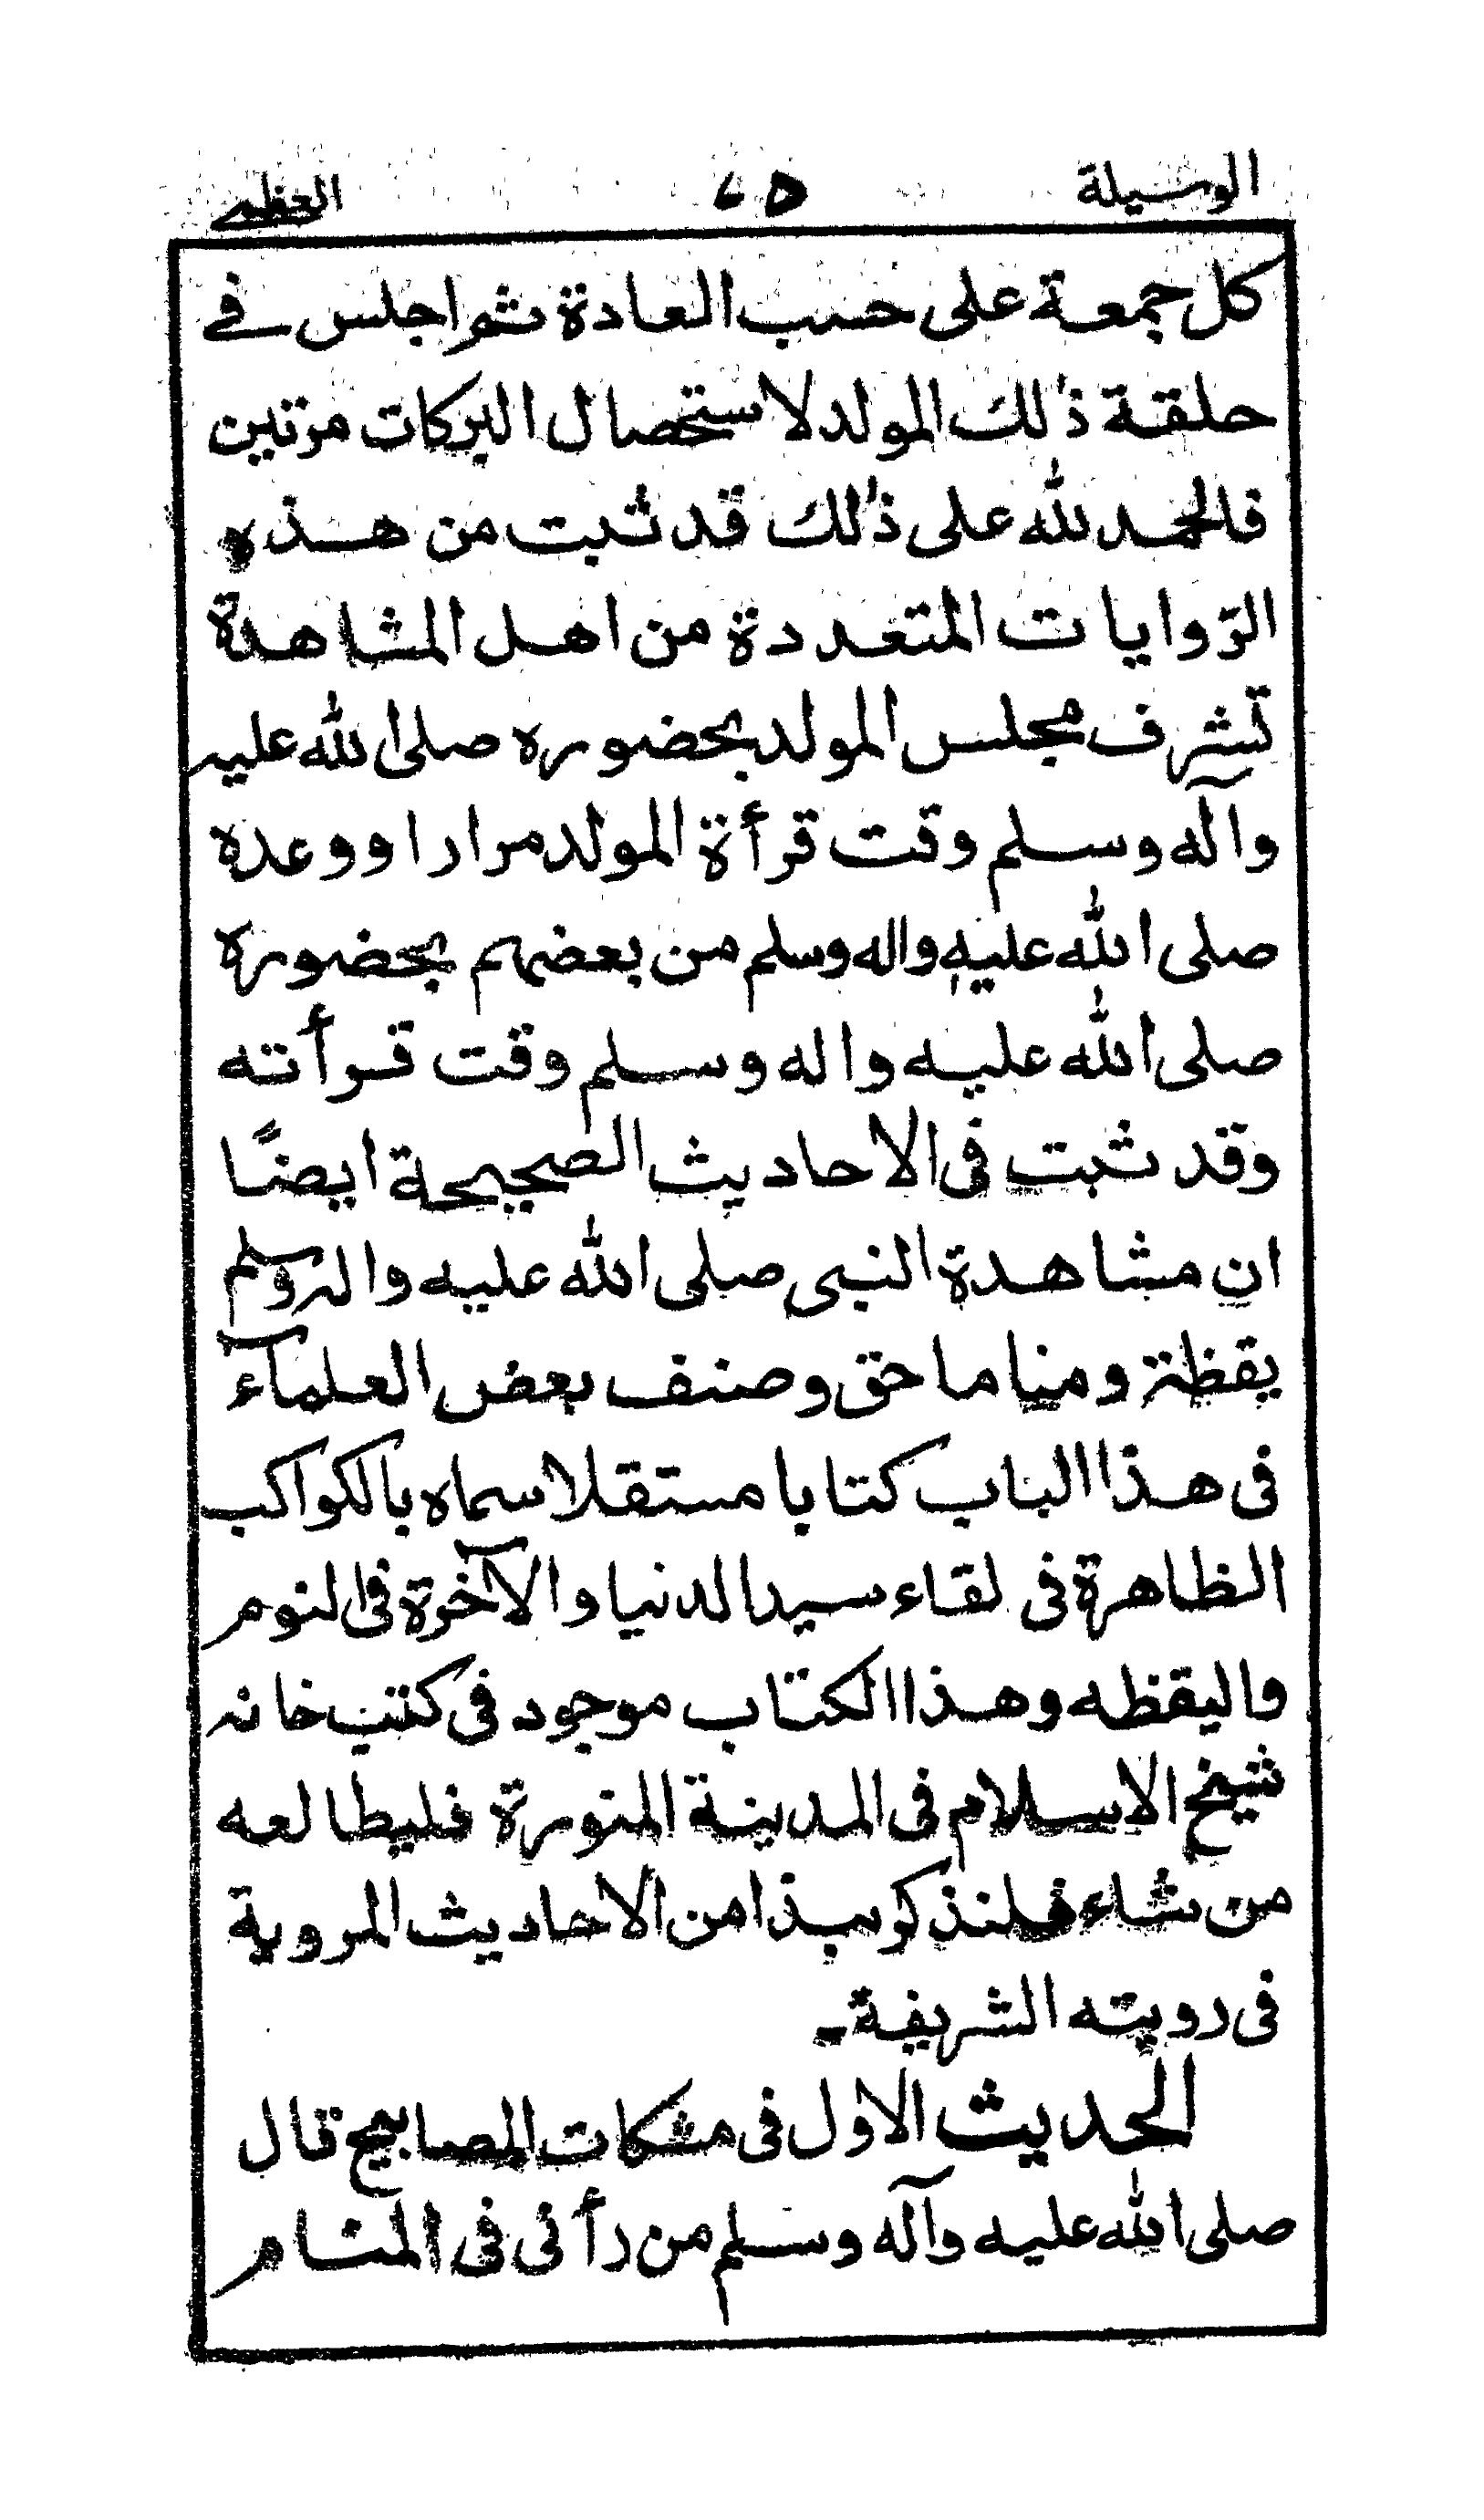 الوسيلة ٥٧ العظمى
كل جمعة على حسب العادة ثم اجلس فے
حلقة ذٰلك المولد لاستحصال البركات مرتين
فالحمد للّٰه على ذٰلك قد ثبت من هذه
الرّوايات المتعددة من اهل المشاهدة
تشرف مجلس المولد بحضوره صلى اللّٰه عليه
وآله وسلم وقت قرأة المولد مرارا ووعده
صلى اللّٰه عليه واله وسلم من بعضهم بحضوره
صلى اللّٰه عليه واله وسلم وقت قرأته
وقد ثبت فى الاحاديث الصحيحة ايضًا
ان مشاهدة النبى صلى اللّٰه عليه واله وسلم
يقظة ومناما حق وصنف بعض العلمآء
فى هذا الباب كتابا مستقلا سماه بالكواكب
الظاهرة فى لقاء سيد الدنيا والآخرة فى النوم
واليقظه وهذا الكتاب موجود فى كتب خانه
شيخ الاسلام فى المدينة المنورة فليطالعه
من شاء فلنذكر نبذا من الاحاديث المروية
فى رويته الشريفة۔
الحديث الاول فى مشكات المصابيح قال
صلى اللّٰه عليه وآله وسلم من رأنى فى المنام